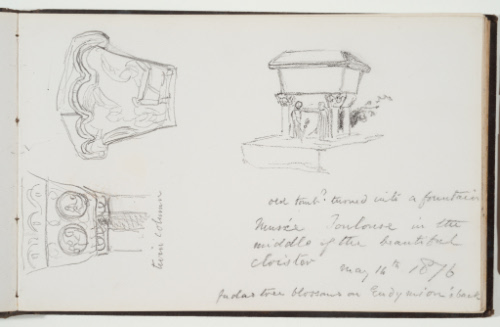 old tomb? turned into a fountain
Musée Toulouse in the
middle of the beautiful
cloister may 16th 1876
Judas tree blossoms on Endymion's back
twin column